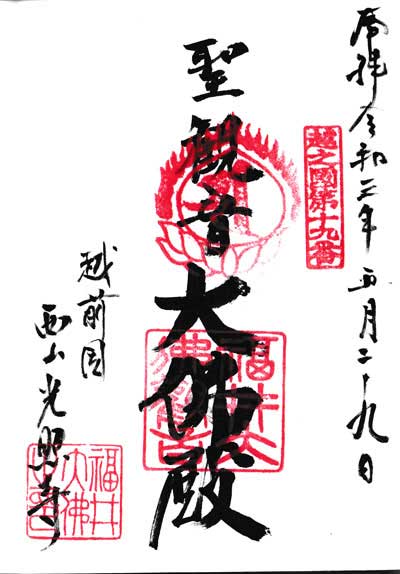 奉拝 令和三年 五月二十九日
越之國第十九番
聖観音大佛殿
福井大佛観音
越前国
西山光照寺
福井大佛